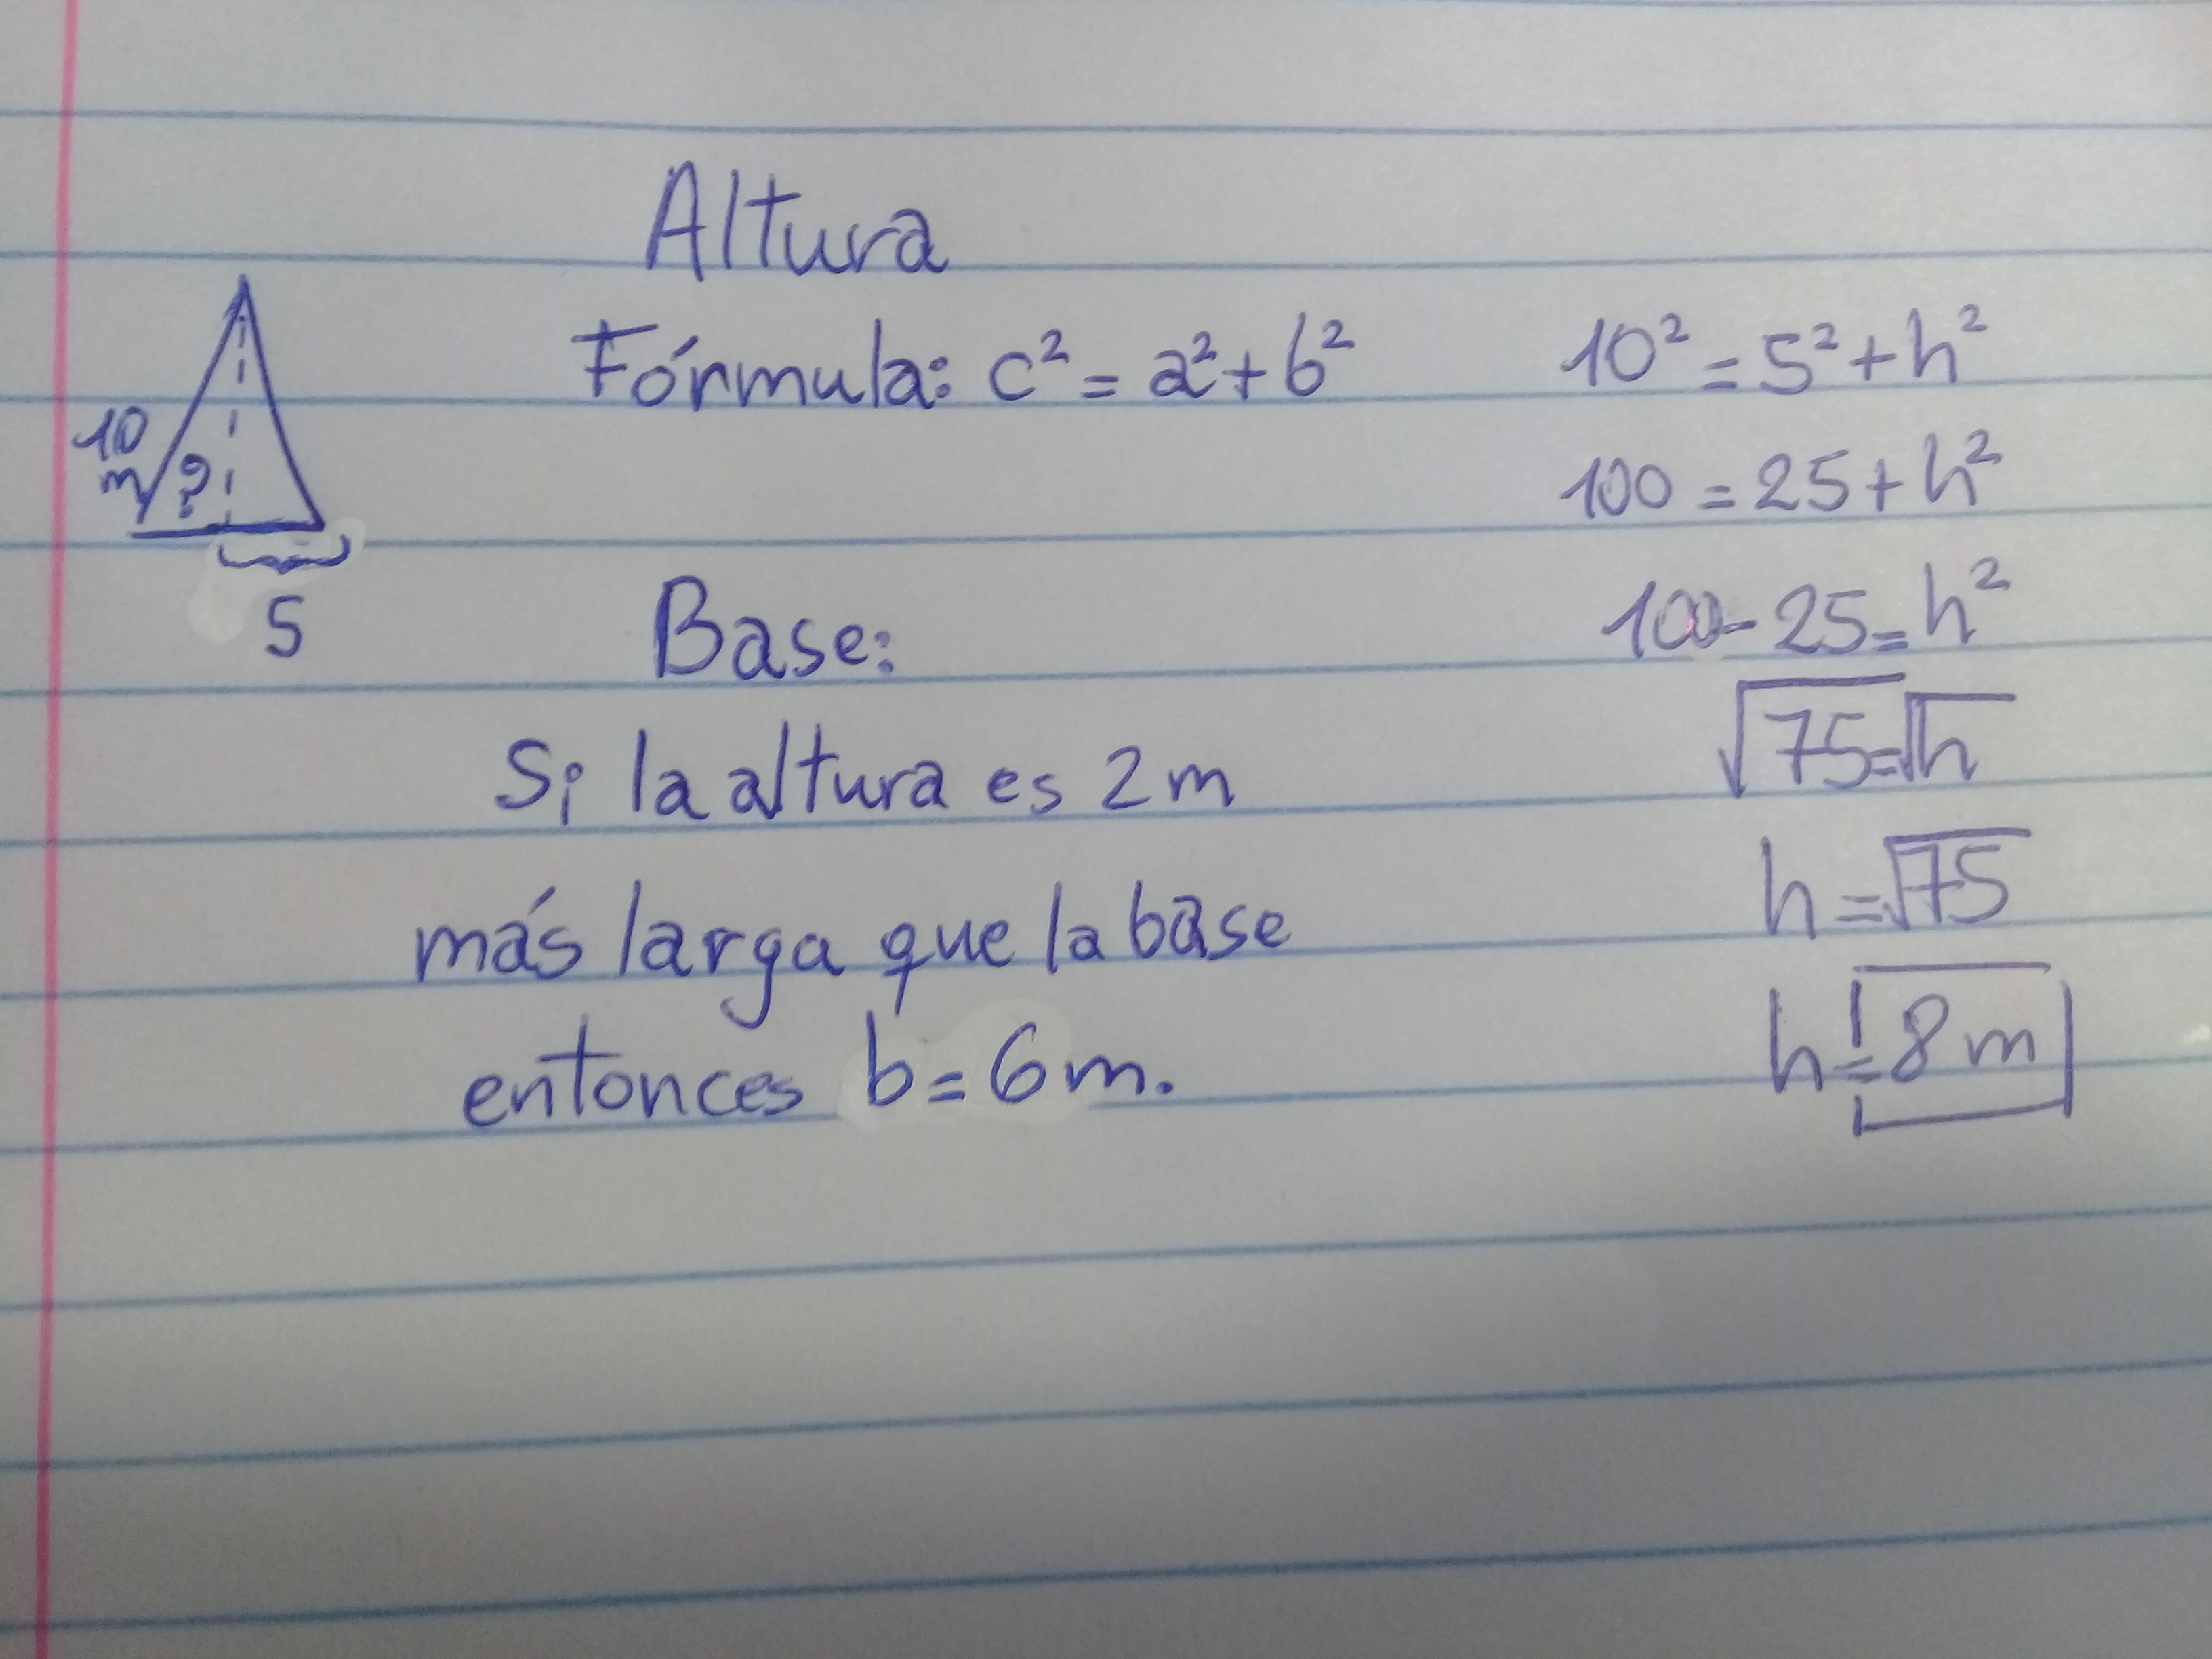 Altura
Fórmula: c² = a² + b²
10 m
?
5
Base:
Si la altura es 2 m
más larga que la base
entonces b = 6 m.
10² = 5² + h²
100 = 25 + h²
100 - 25 = h²
√75 = √h
h = √75
h = 8 m